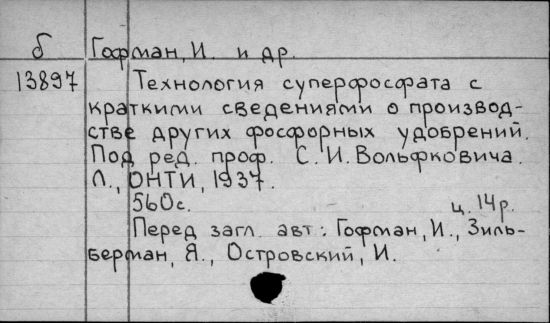 б Гофман, И. и др.
13897 Технология суперфосфата с
краткими сведениями о производ-
стве других фосфорных удобрений.
Под ред. проф. С. И. Вольфковича.
Л., ОНТИ, 1937.
560с. ц. 14р.
Перед загл. авт: Гофман, И., Зиль-
берман, Я., Островский, И.